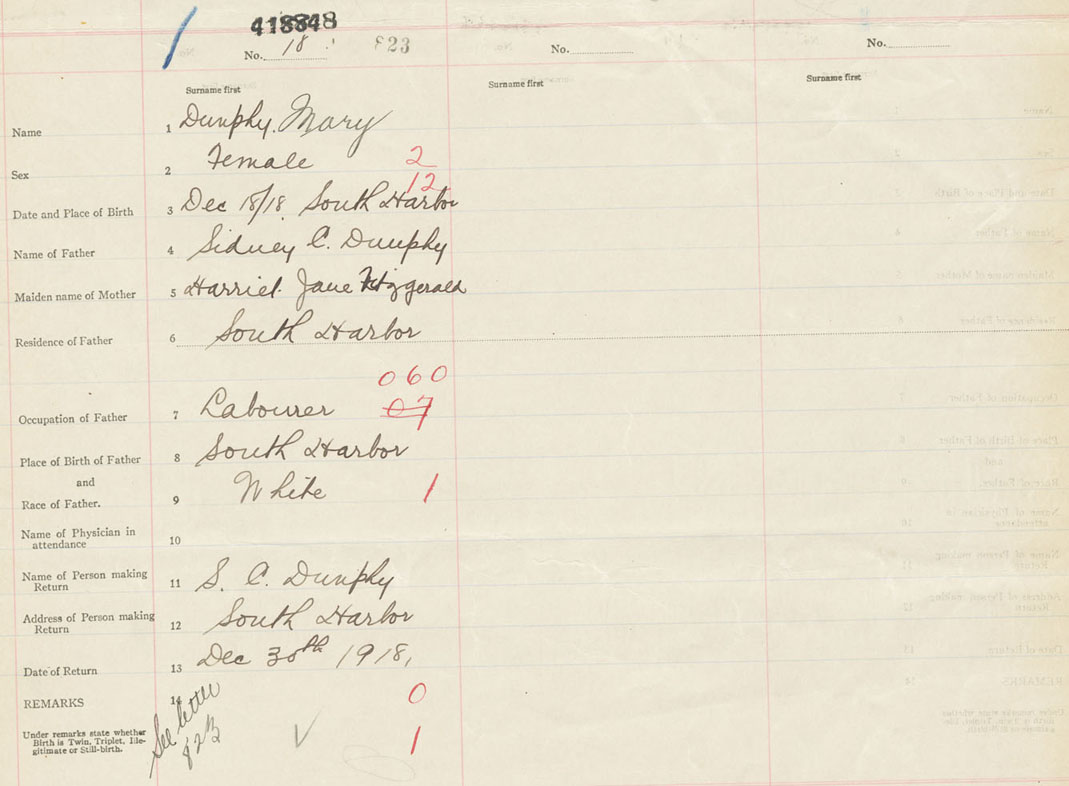 418848
No. 18 823 No. No.
Surname first Surname first Surname first
Name 1 Dunphy, Mary
Sex 2 Female 2
12
Date and Place of Birth 3 Dec 18/18 South Harbor
Name of Father 4 Sidney C. Dunphy
Maiden name of Mother 5 Harriet Jane Fitzgerald
Residence of Father 6 South Harbor
060
Occupation of Father 7 Labourer 07
Place of Birth of Father 8 South Harbor
and
Race of Father. 9 White 1
Name of Physician in
attendance 10
Name of Person making
Return 11 S. C. Dunphy
Address of Person making
Return 12 South Harbor
Date of Return 13 Dec 30th 1918,
REMARKS 14 0
Under remarks state whether
Birth is Twin, Triplet, Ille-
gitimate or Still-birth. 1
See letter
823